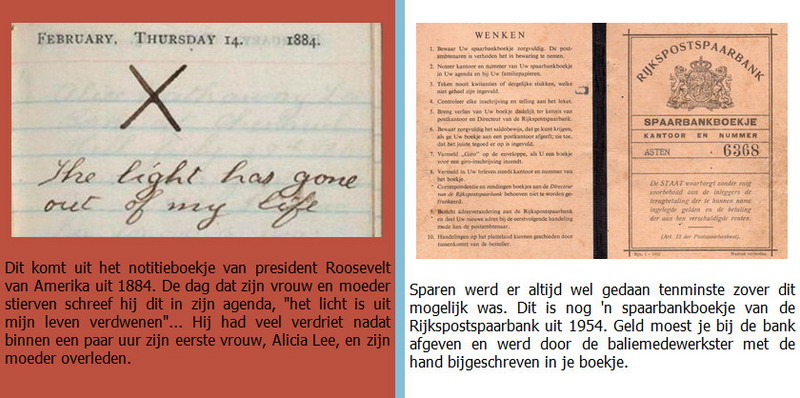 FEBRUARY. THURSDAY 14. 1884.
X
The light has gone
out of my life
Dit komt uit het notitieboekje van president Roosevelt
van Amerika uit 1884. De dag dat zijn vrouw en moeder
stierven schreef hij dit in zijn agenda, "het licht is uit
mijn leven verdwenen"... Hij had veel verdriet nadat
binnen een paar uur zijn eerste vrouw, Alicia Lee, en zijn
moeder overleden.
WENKEN
1. Bewaar Uw spaarbankboekje zorgvuldig. De post-
ambtenaren is verboden het in bewaring te nemen.
2. Noteer kantoor en nummer van Uw spaarbankboekje
in Uw agenda en bij Uw familiepapieren.
3. Teken nooit kwitanties of dergelijke stukken, welke
niet geheel zijn ingevuld.
4. Controleer elke inschrijving en telling aan het loket.
5. Breng verlies van Uw boekje dadelijk ter kennis van
postkantoor en Directeur van de Rijkspostspaarbank.
6. Bewaar zorgvuldig het saldobewijs, dat ge kunt krijgen,
als ge Uw boekje aan een postkantoor afgeeft; zie toe,
dat het juiste tegoed er op is ingevuld.
7. Vermeld „Giro" op de enveloppe, als U een boekje
voor een giro-inschrijving inzendt.
8. Vermeld in Uw brieven steeds kantoor en nummer van
het boekje.
9. Bericht adresverandering aan de Rijkspostspaarbank
en doet Uw nieuwe adres bij de eerstvolgende handeling
mede aan de postambtenaar.
10. Handelingen op het platteland kunnen geschieden door
tussenkomst van de besteller.
RIJKSPOSTSPAARBANK
SPAARBANKBOEKJE
KANTOOR EN NUMMER
ASTEN 6368
De STAAT waarborgt zonder enig
voorbehoud aan de inleggers de
terugbetaling der te hunnen name
ingelegde gelden en de betaling
der aan hen verschuldigde renten.
(Art. 13 der Postspaarbankwet).
Sparen werd er altijd wel gedaan tenminste zover dit
mogelijk was. Dit is nog 'n spaarbankboekje van de
Rijkspostspaarbank uit 1954. Geld moest je bij de bank
afgeven en werd door de baliemedewerkster met de
hand bijgeschreven in je boekje.